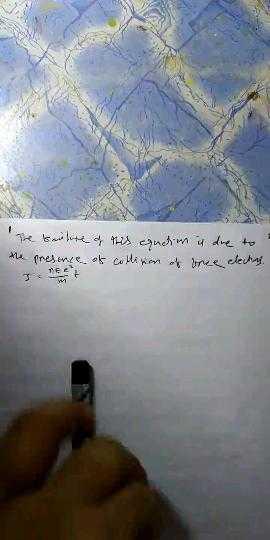 The failure of this equation is due to
the presence of collision of free electrons.
J = nEe²/m t